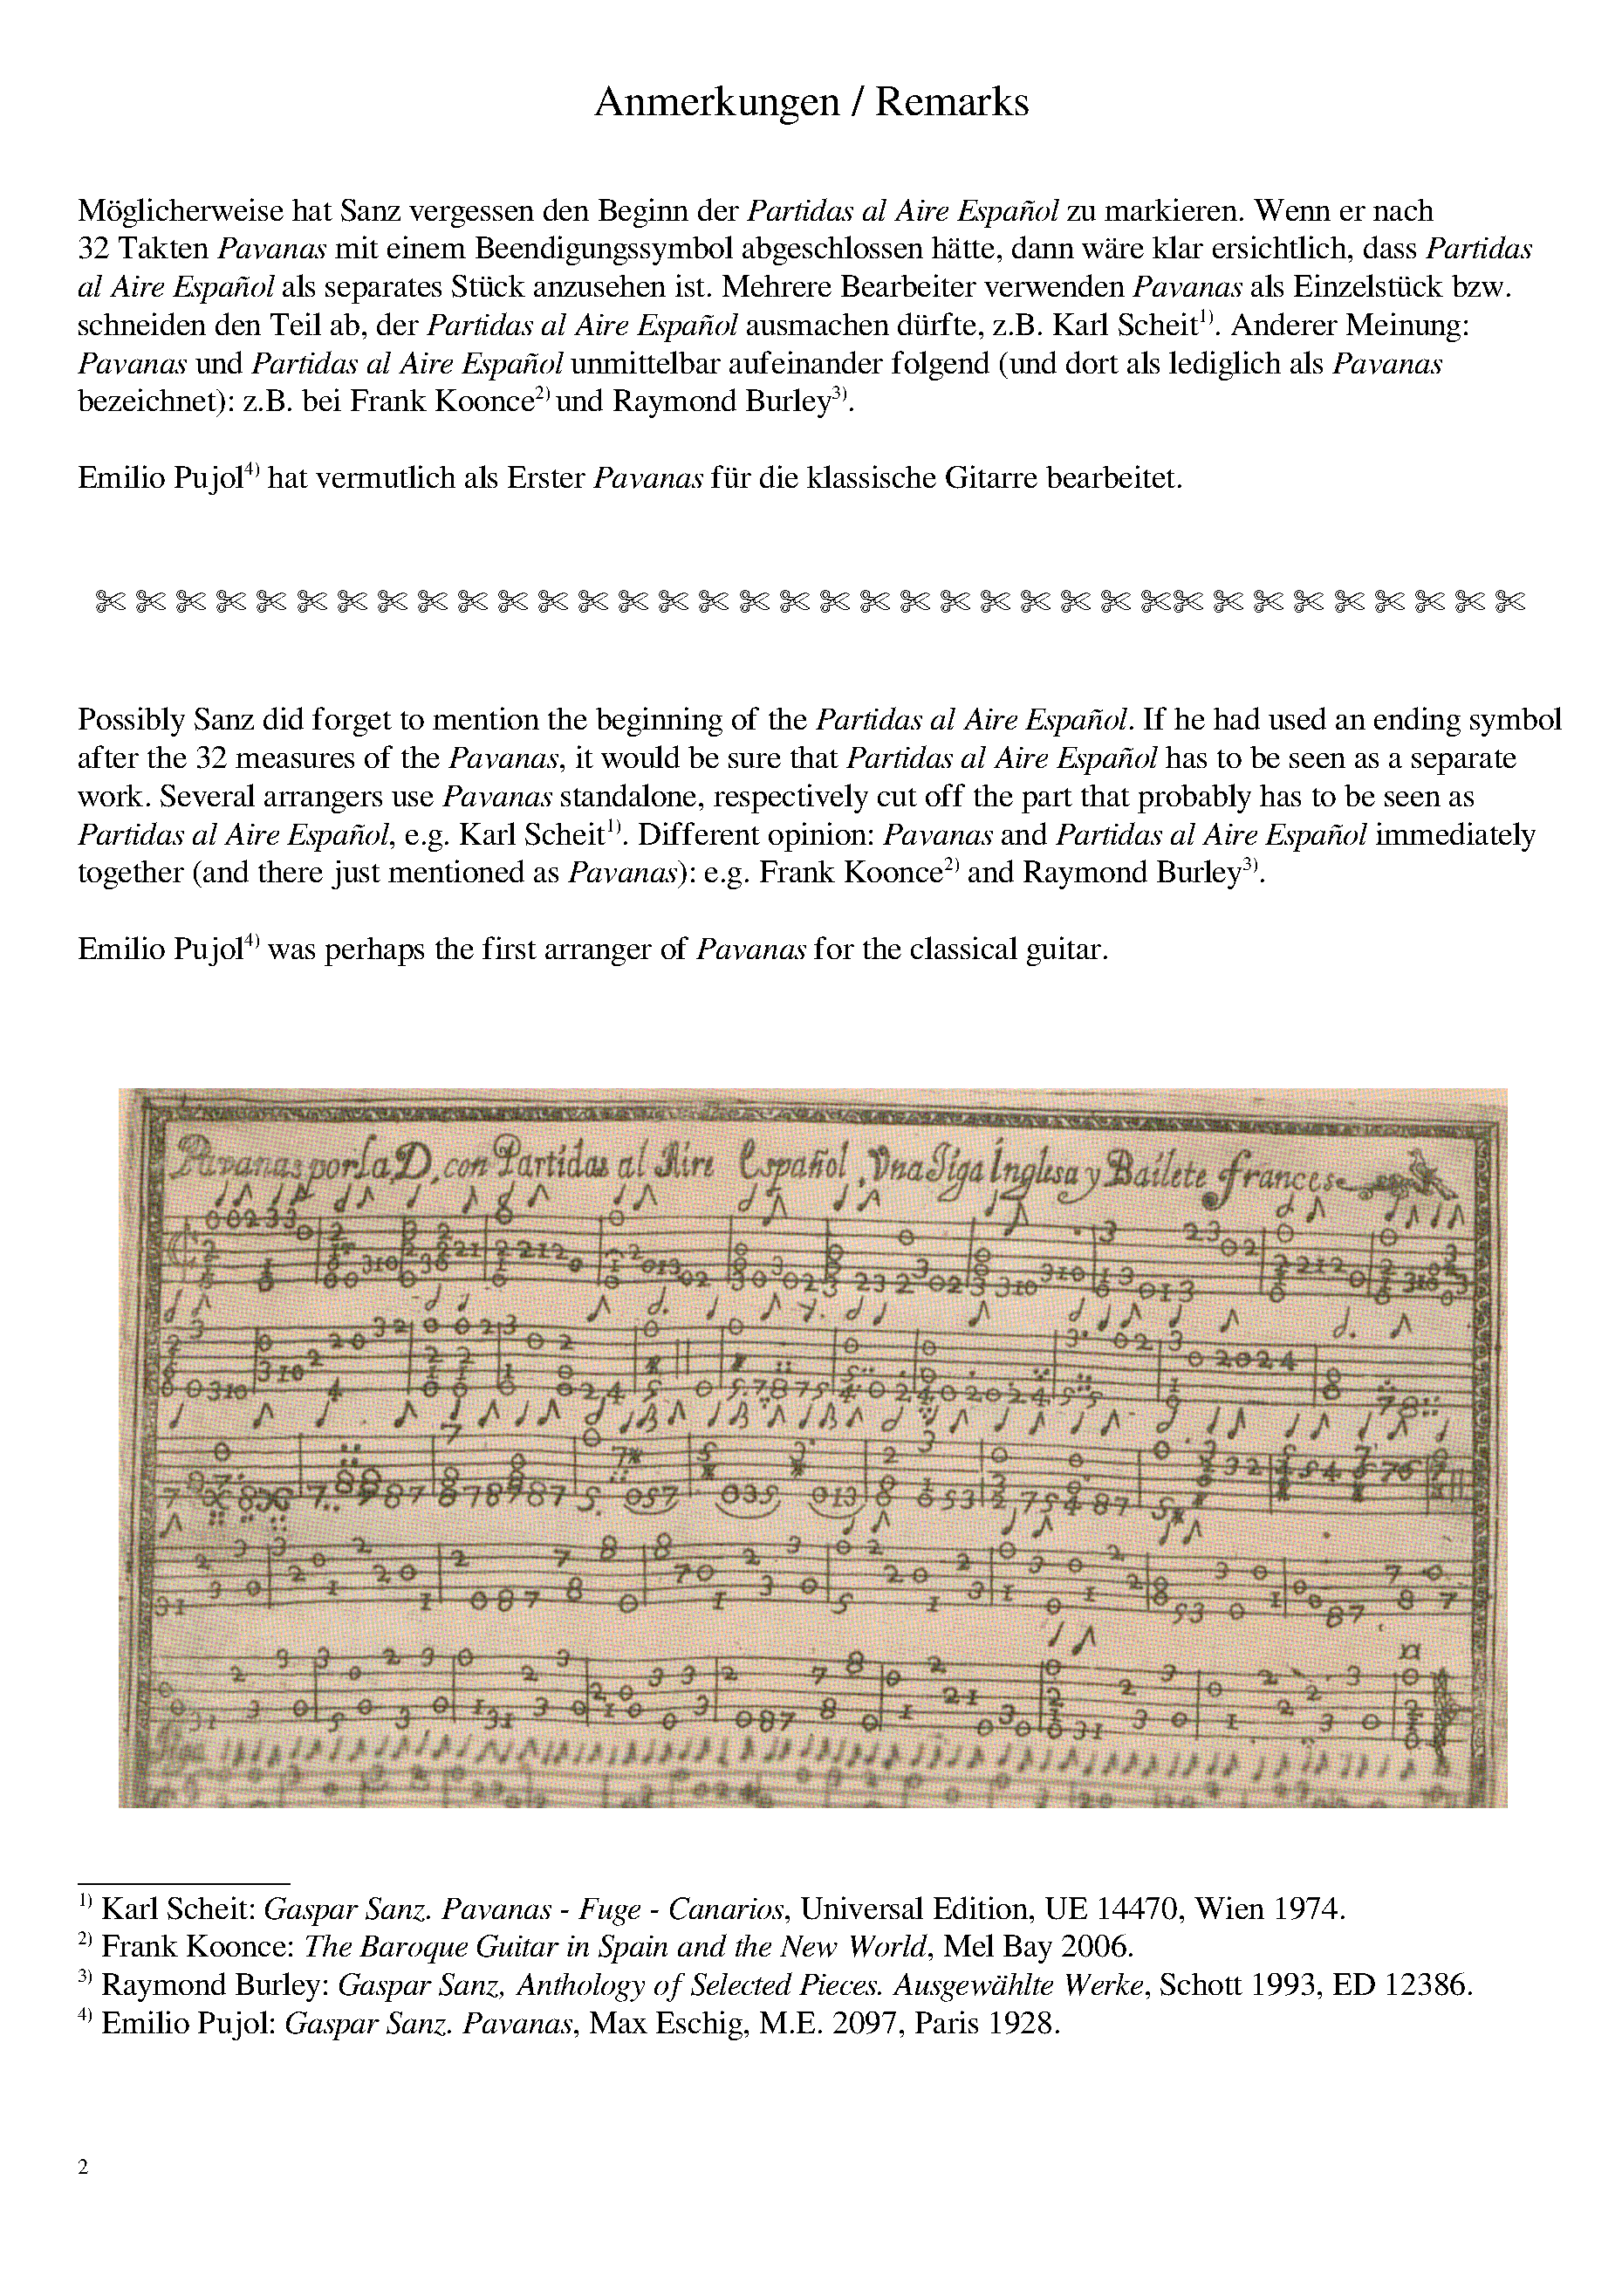 Anmerkungen / Remarks
Möglicherweise hat Sanz vergessen den Beginn der Partidas al Aire Español zu markieren. Wenn er nach
32 Takten Pavanas mit einem Beendigungssymbol abgeschlossen hätte, dann wäre klar ersichtlich, dass Partidas
al Aire Español als separates Stück anzusehen ist. Mehrere Bearbeiter verwenden Pavanas als Einzelstück bzw.
schneiden den Teil ab, der Partidas al Aire Español ausmachen dürfte, z.B. Karl Scheit1). Anderer Meinung:
Pavanas und Partidas al Aire Español unmittelbar aufeinander folgend (und dort als lediglich als Pavanas
bezeichnet): z.B. bei Frank Koonce2) und Raymond Burley3).
Emilio Pujol4) hat vermutlich als Erster Pavanas für die klassische Gitarre bearbeitet.
Possibly Sanz did forget to mention the beginning of the Partidas al Aire Español. If he had used an ending symbol
after the 32 measures of the Pavanas, it would be sure that Partidas al Aire Español has to be seen as a separate
work. Several arrangers use Pavanas standalone, respectively cut off the part that probably has to be seen as
Partidas al Aire Español, e.g. Karl Scheit1). Different opinion: Pavanas and Partidas al Aire Español immediately
together (and there just mentioned as Pavanas): e.g. Frank Koonce2) and Raymond Burley3).
Emilio Pujol4) was perhaps the first arranger of Pavanas for the classical guitar.
Pavanas por la D, con Partidas al Aire Español, Vna Jiga Inglesa y Bailete frances
1) Karl Scheit: Gaspar Sanz. Pavanas - Fuge - Canarios, Universal Edition, UE 14470, Wien 1974.
2) Frank Koonce: The Baroque Guitar in Spain and the New World, Mel Bay 2006.
3) Raymond Burley: Gaspar Sanz, Anthology of Selected Pieces. Ausgewählte Werke, Schott 1993, ED 12386.
4) Emilio Pujol: Gaspar Sanz. Pavanas, Max Eschig, M.E. 2097, Paris 1928.
2